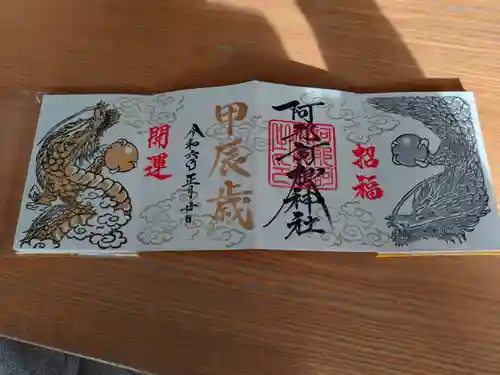 招福
阿邪訶根神社
甲辰歳
令和六年正月廿日
開運